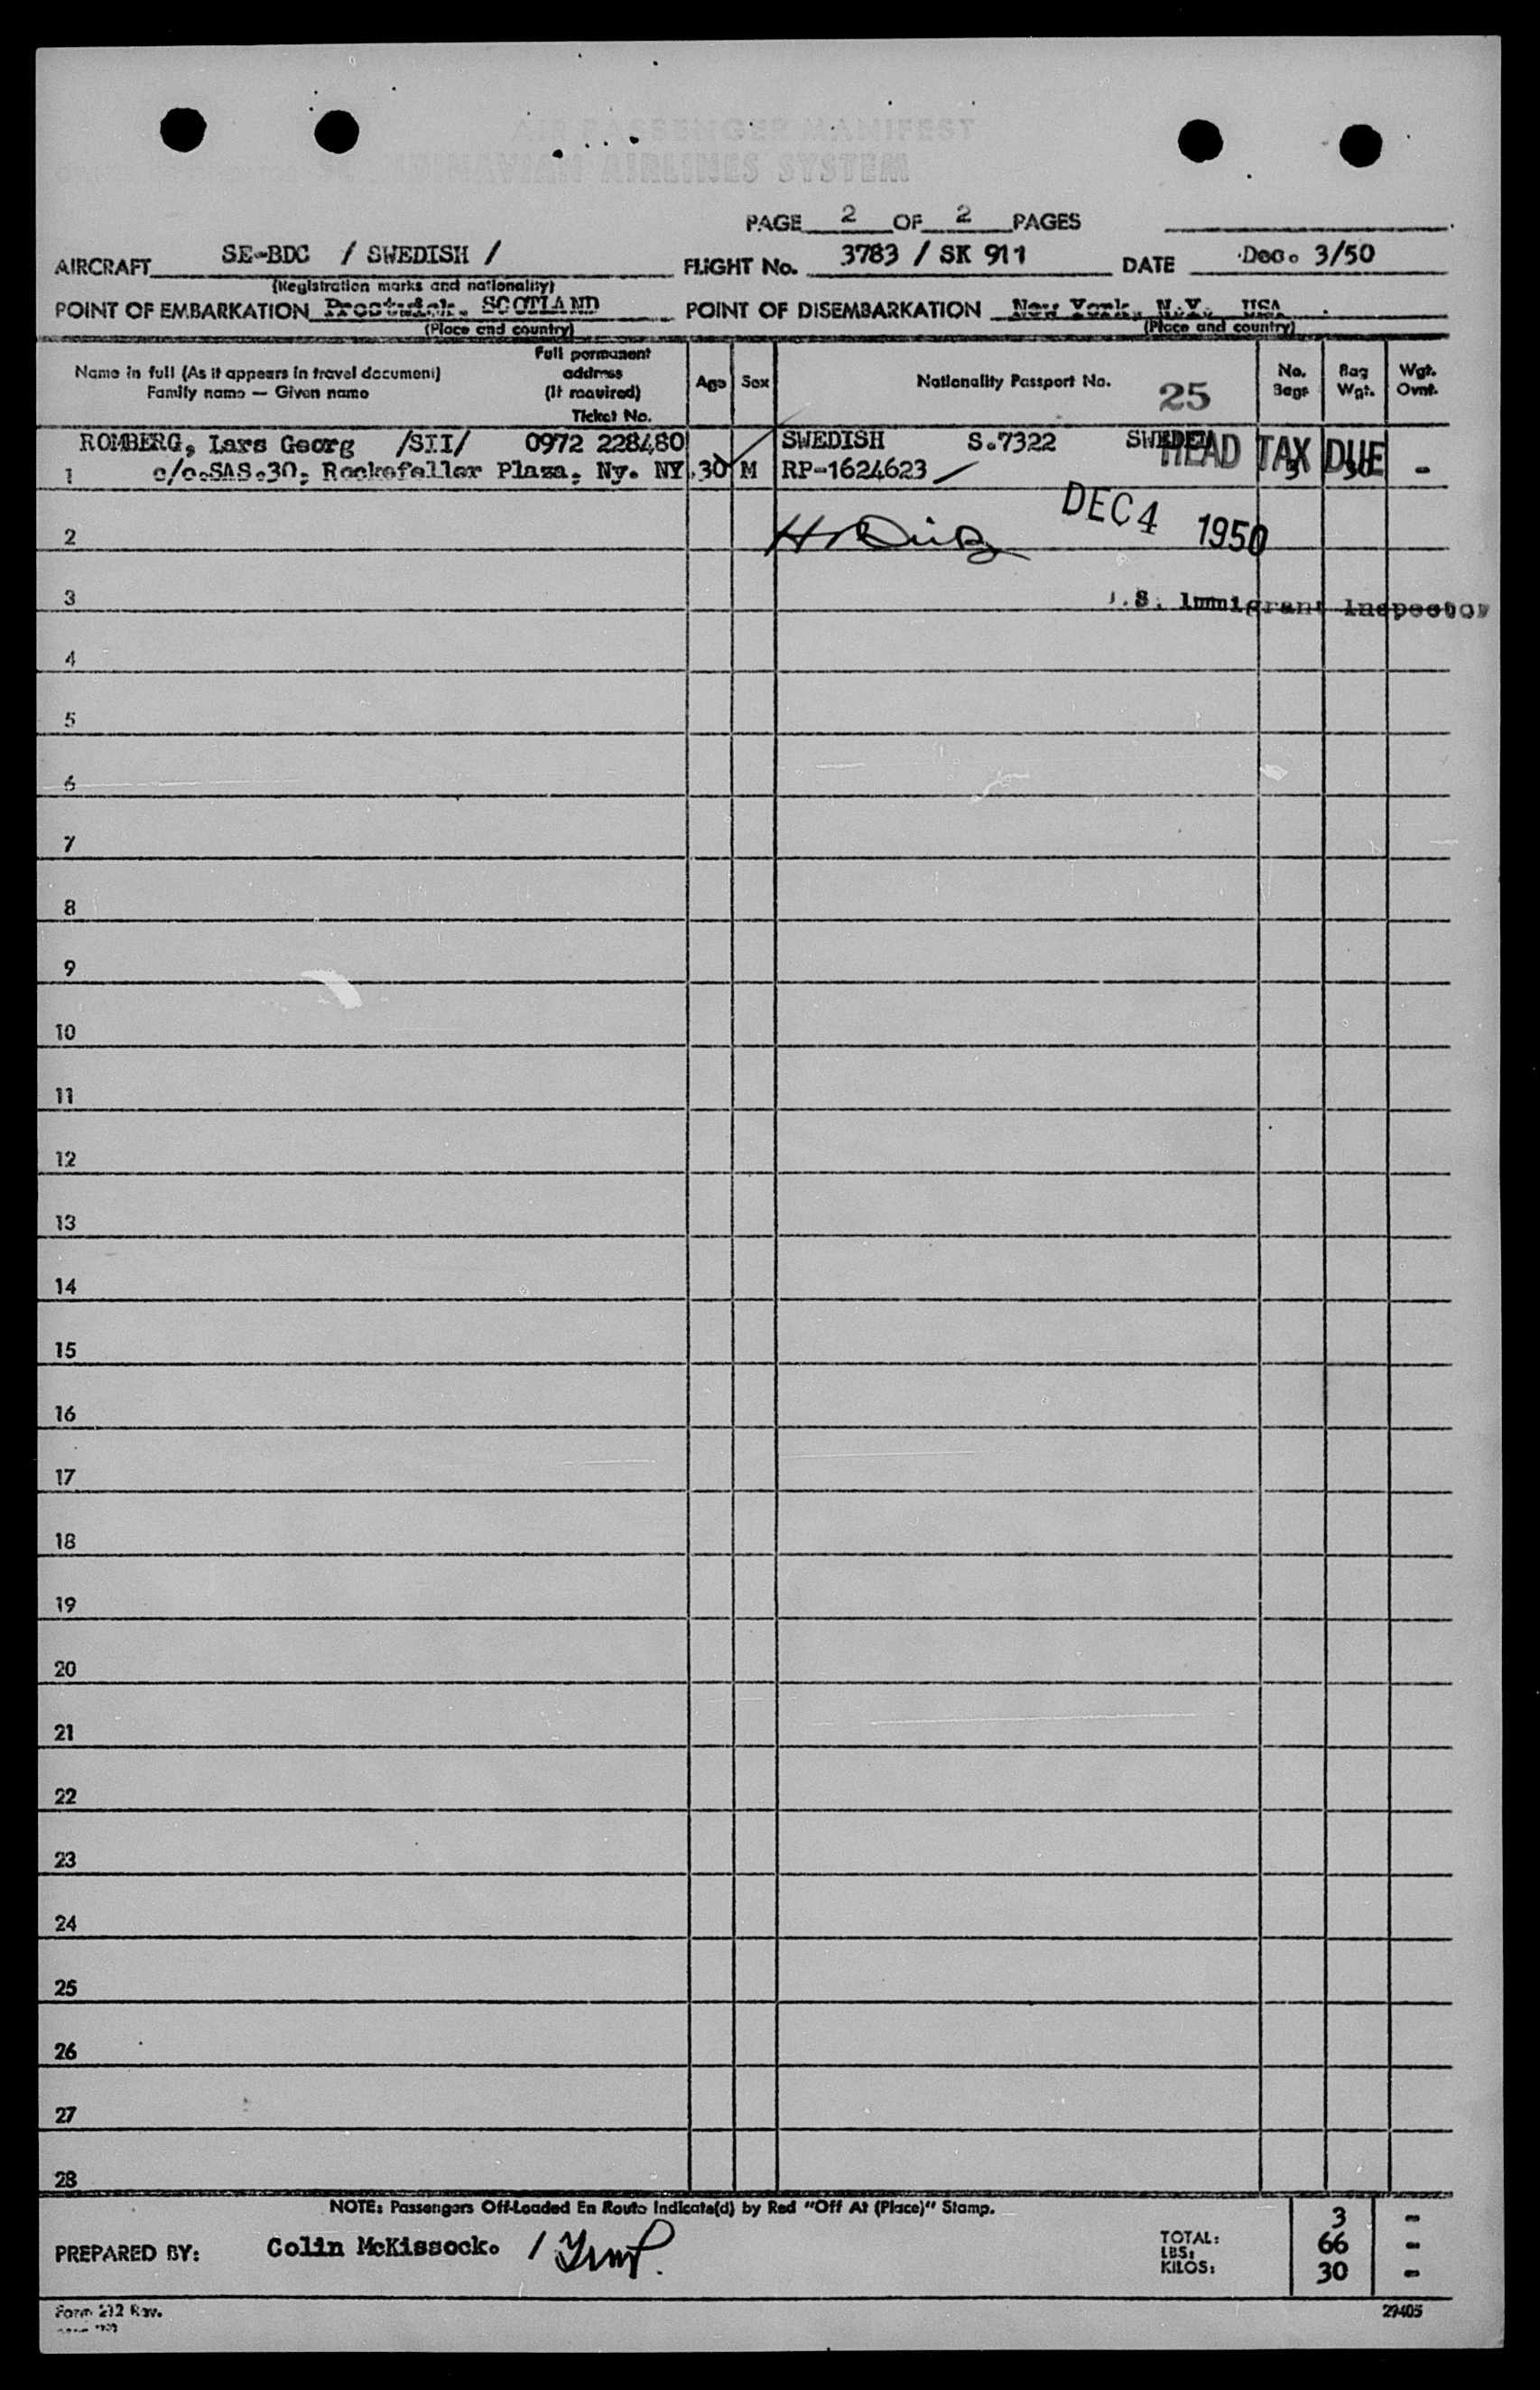 AIR PASSENGER MANIFEST
SCANDINAVIAN AIRLINES SYSTEM
PAGE 2 OF 2 PAGES
AIRCRAFT SE-BDC / SWEDISH / FLIGHT No. 3783 / SK 911 DATE Dec. 3/50
(Registration marks and nationality)
POINT OF EMBARKATION Prestwick, SCOTLAND POINT OF DISEMBARKATION New York, N.Y. USA
(Place and country) (Place and country)
Name in full (As it appears in travel document)
Family name — Given name
Full permanent
address
(If required)
Ticket No.
Age Sex Nationality Passport No. 25
No. Bags Bag Wgt. Wgt. Ovnt.
ROMBERG, Lars Georg /SII/ 0972 228480 SWEDISH S.7322 SWEDEN HEAD TAX DUE
1 c/o.SAS.30, Rockefeller Plaza, Ny. NY 30 M RP-1624623 3 30 -
DEC 4 1950
2
3 U.S. Immigrant Inspector
4
5
6
7
8
9
10
11
12
13
14
15
16
17
18
19
20
21
22
23
24
25
26
27
28
NOTE: Passengers Off-Loaded En Route Indicate(d) by Red "Off At (Place)" Stamp.
PREPARED BY: Colin McKissock. /
TOTAL: 3 -
LBS: 66 -
KILOS: 30 -
Form 212 Rev.
29405